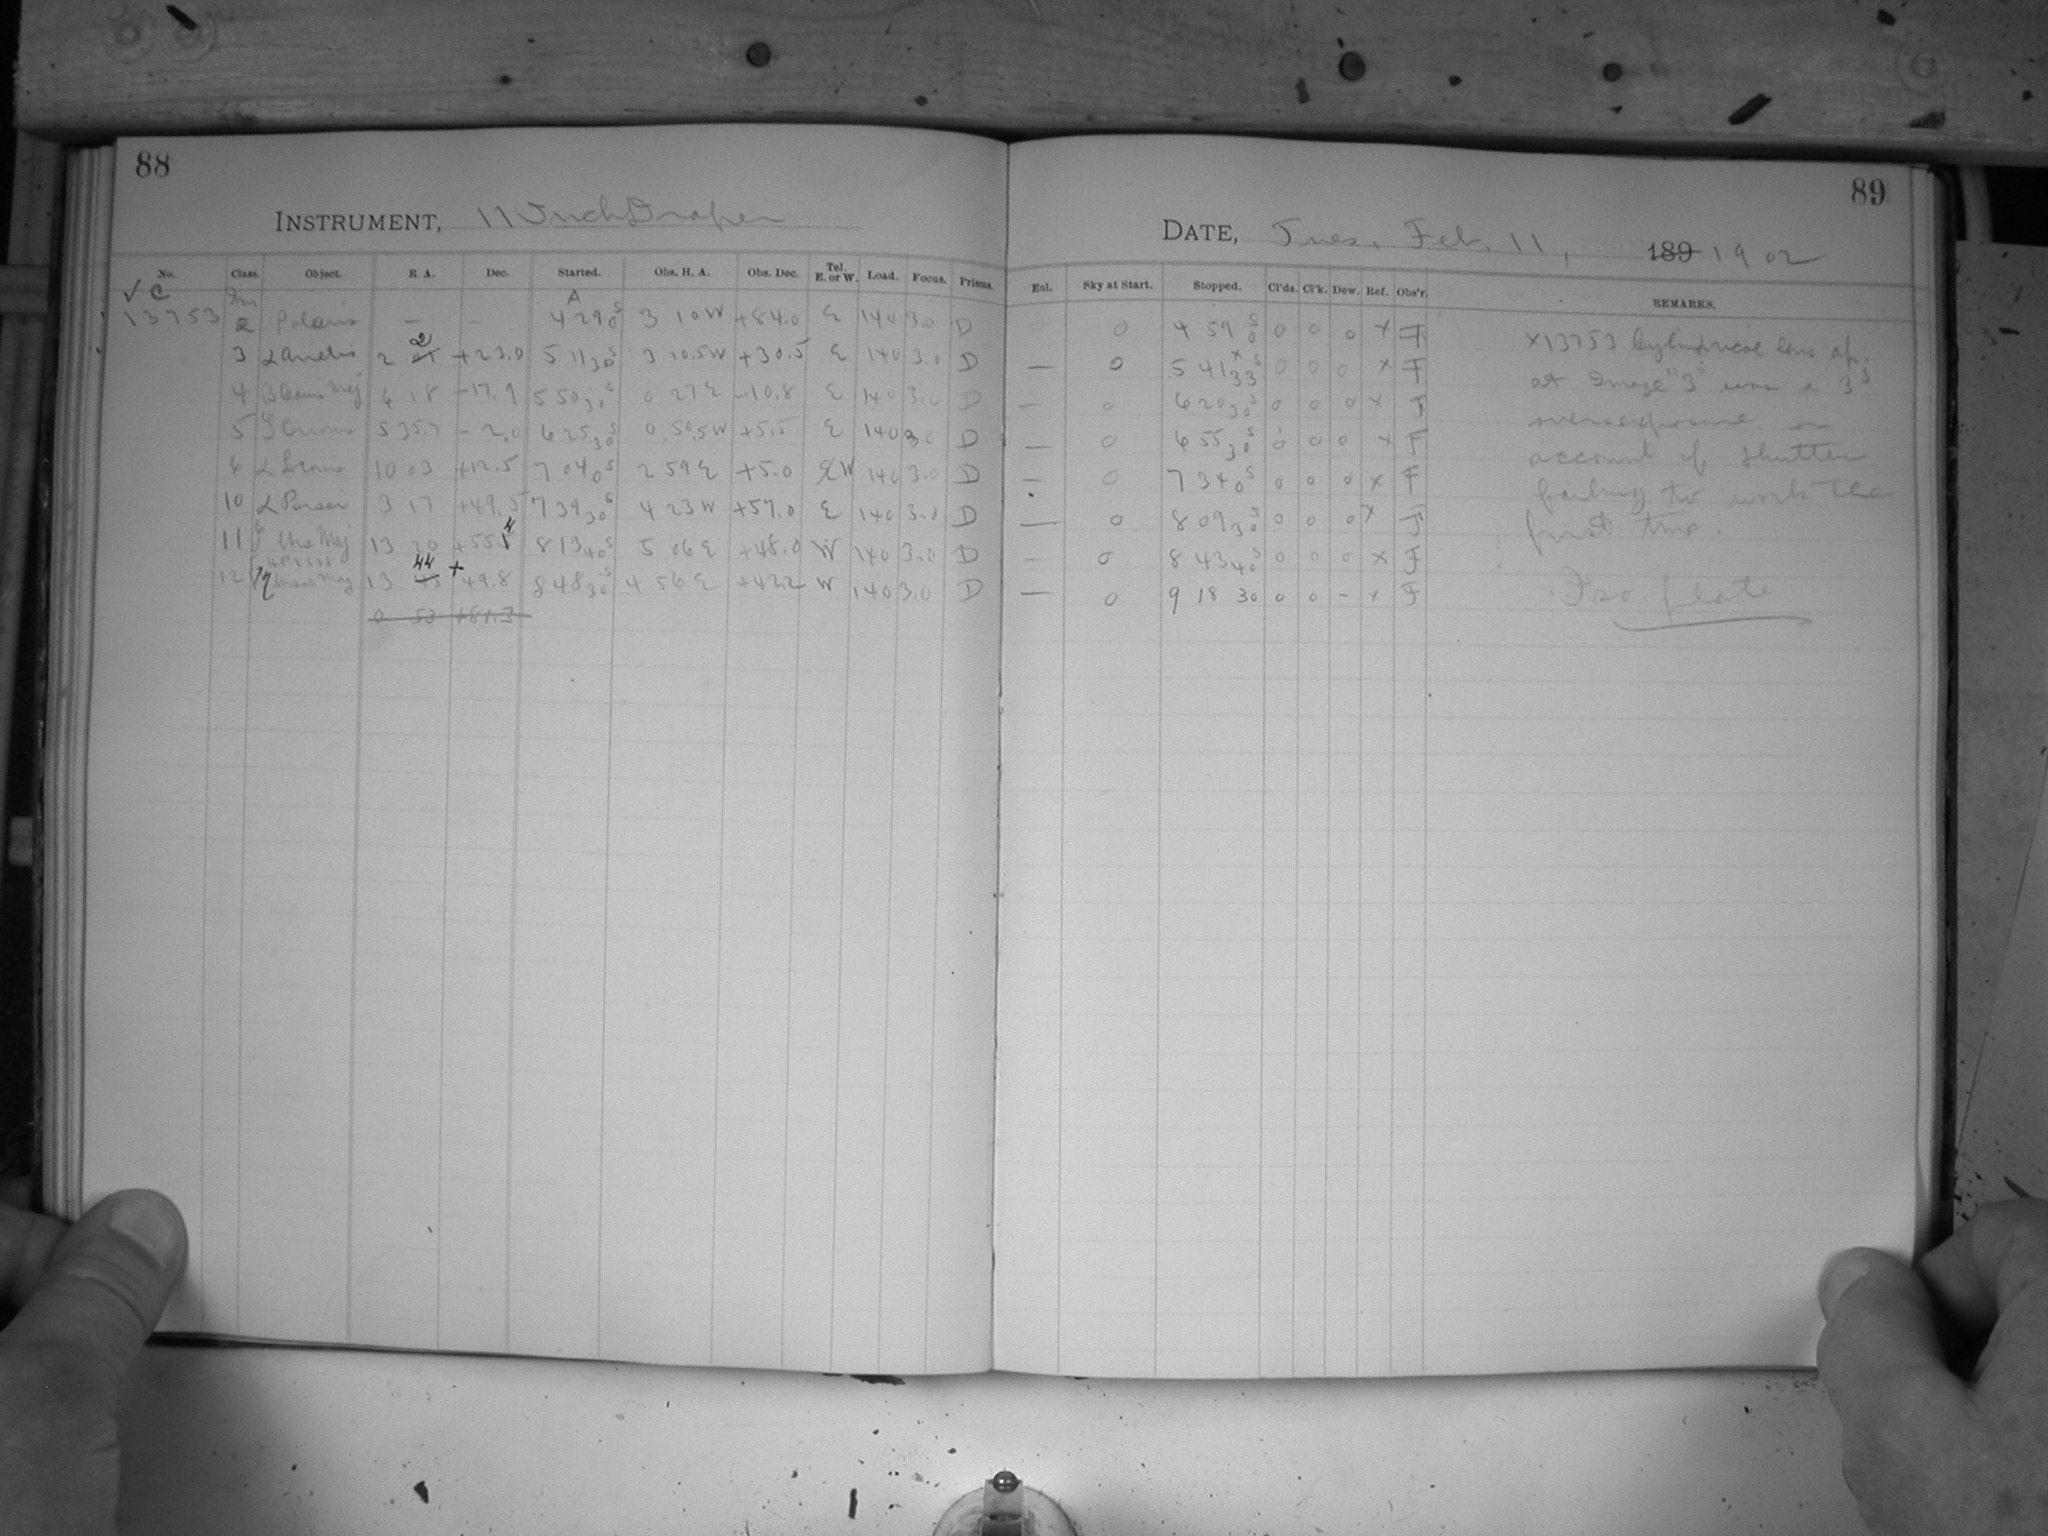 88
INSTRUMENT, 11 Inch Draper
No. Class. Object. R A. Dec. Started. Obs. H. A. Obs. Dec. Tel. E. or W. Load. Focus. Prisms.
√ C Im A
13753 2 Polaris — - 4 29 0s 3 10 W +84.0 E 140 3.0 D
3 α Arietis 2 2 +23.0 5 11 30s 3 10.5 W +30.5 E 140 3.0 D
4 β Canis Maj 6 18 -17.9 5 50 30s 0 27 E -10.8 E 140 3.0 D
5 ζ Orionis 5 35.7 -2.0 6 25 30s 0 50.5 W +5.5 E 140 3.0 D
6 α Leonis 10 03 +12.5 7 04 0s 2 59 E +5.0 E W 140 3.0 D
10 α Persei 3 17 +49.5 7 39 30s 4 23 W +57.0 E 140 3.0 D
11 ζ Urs Maj 13 20 +55.4 8 13 40s 5 06 E +48.0 W 140 3.0 D
12 η Ursae Maj 13 44 +49.8 8 48 30s 4 56 E +42.2 W 140 3.0 D
0 53 +81.3
89
DATE, Tues. Feb. 11, 189 1902
Eul. Sky at Start. Stopped. Cl'ds. Cl'k. Dew. Ref. Obs'r. REMARKS.
0 4 59 0s 0 0 0 x F
— 0 5 41 33s x 0 0 0 x F
— 0 6 20 30s 0 0 0 x F
— 0 6 55 30s 0 0 0 x F
— 0 7 34 0s 0 0 0 x F
— 0 8 09 30s 0 0 0 x F
— 0 8 43 40s 0 0 0 x F
— 0 9 18 30 0 0 - x F
x13753 Cylindrical lens
at Image "3" was a 3s
overexposure on
account of shutter
failing to work the
first time.
Iso. plate